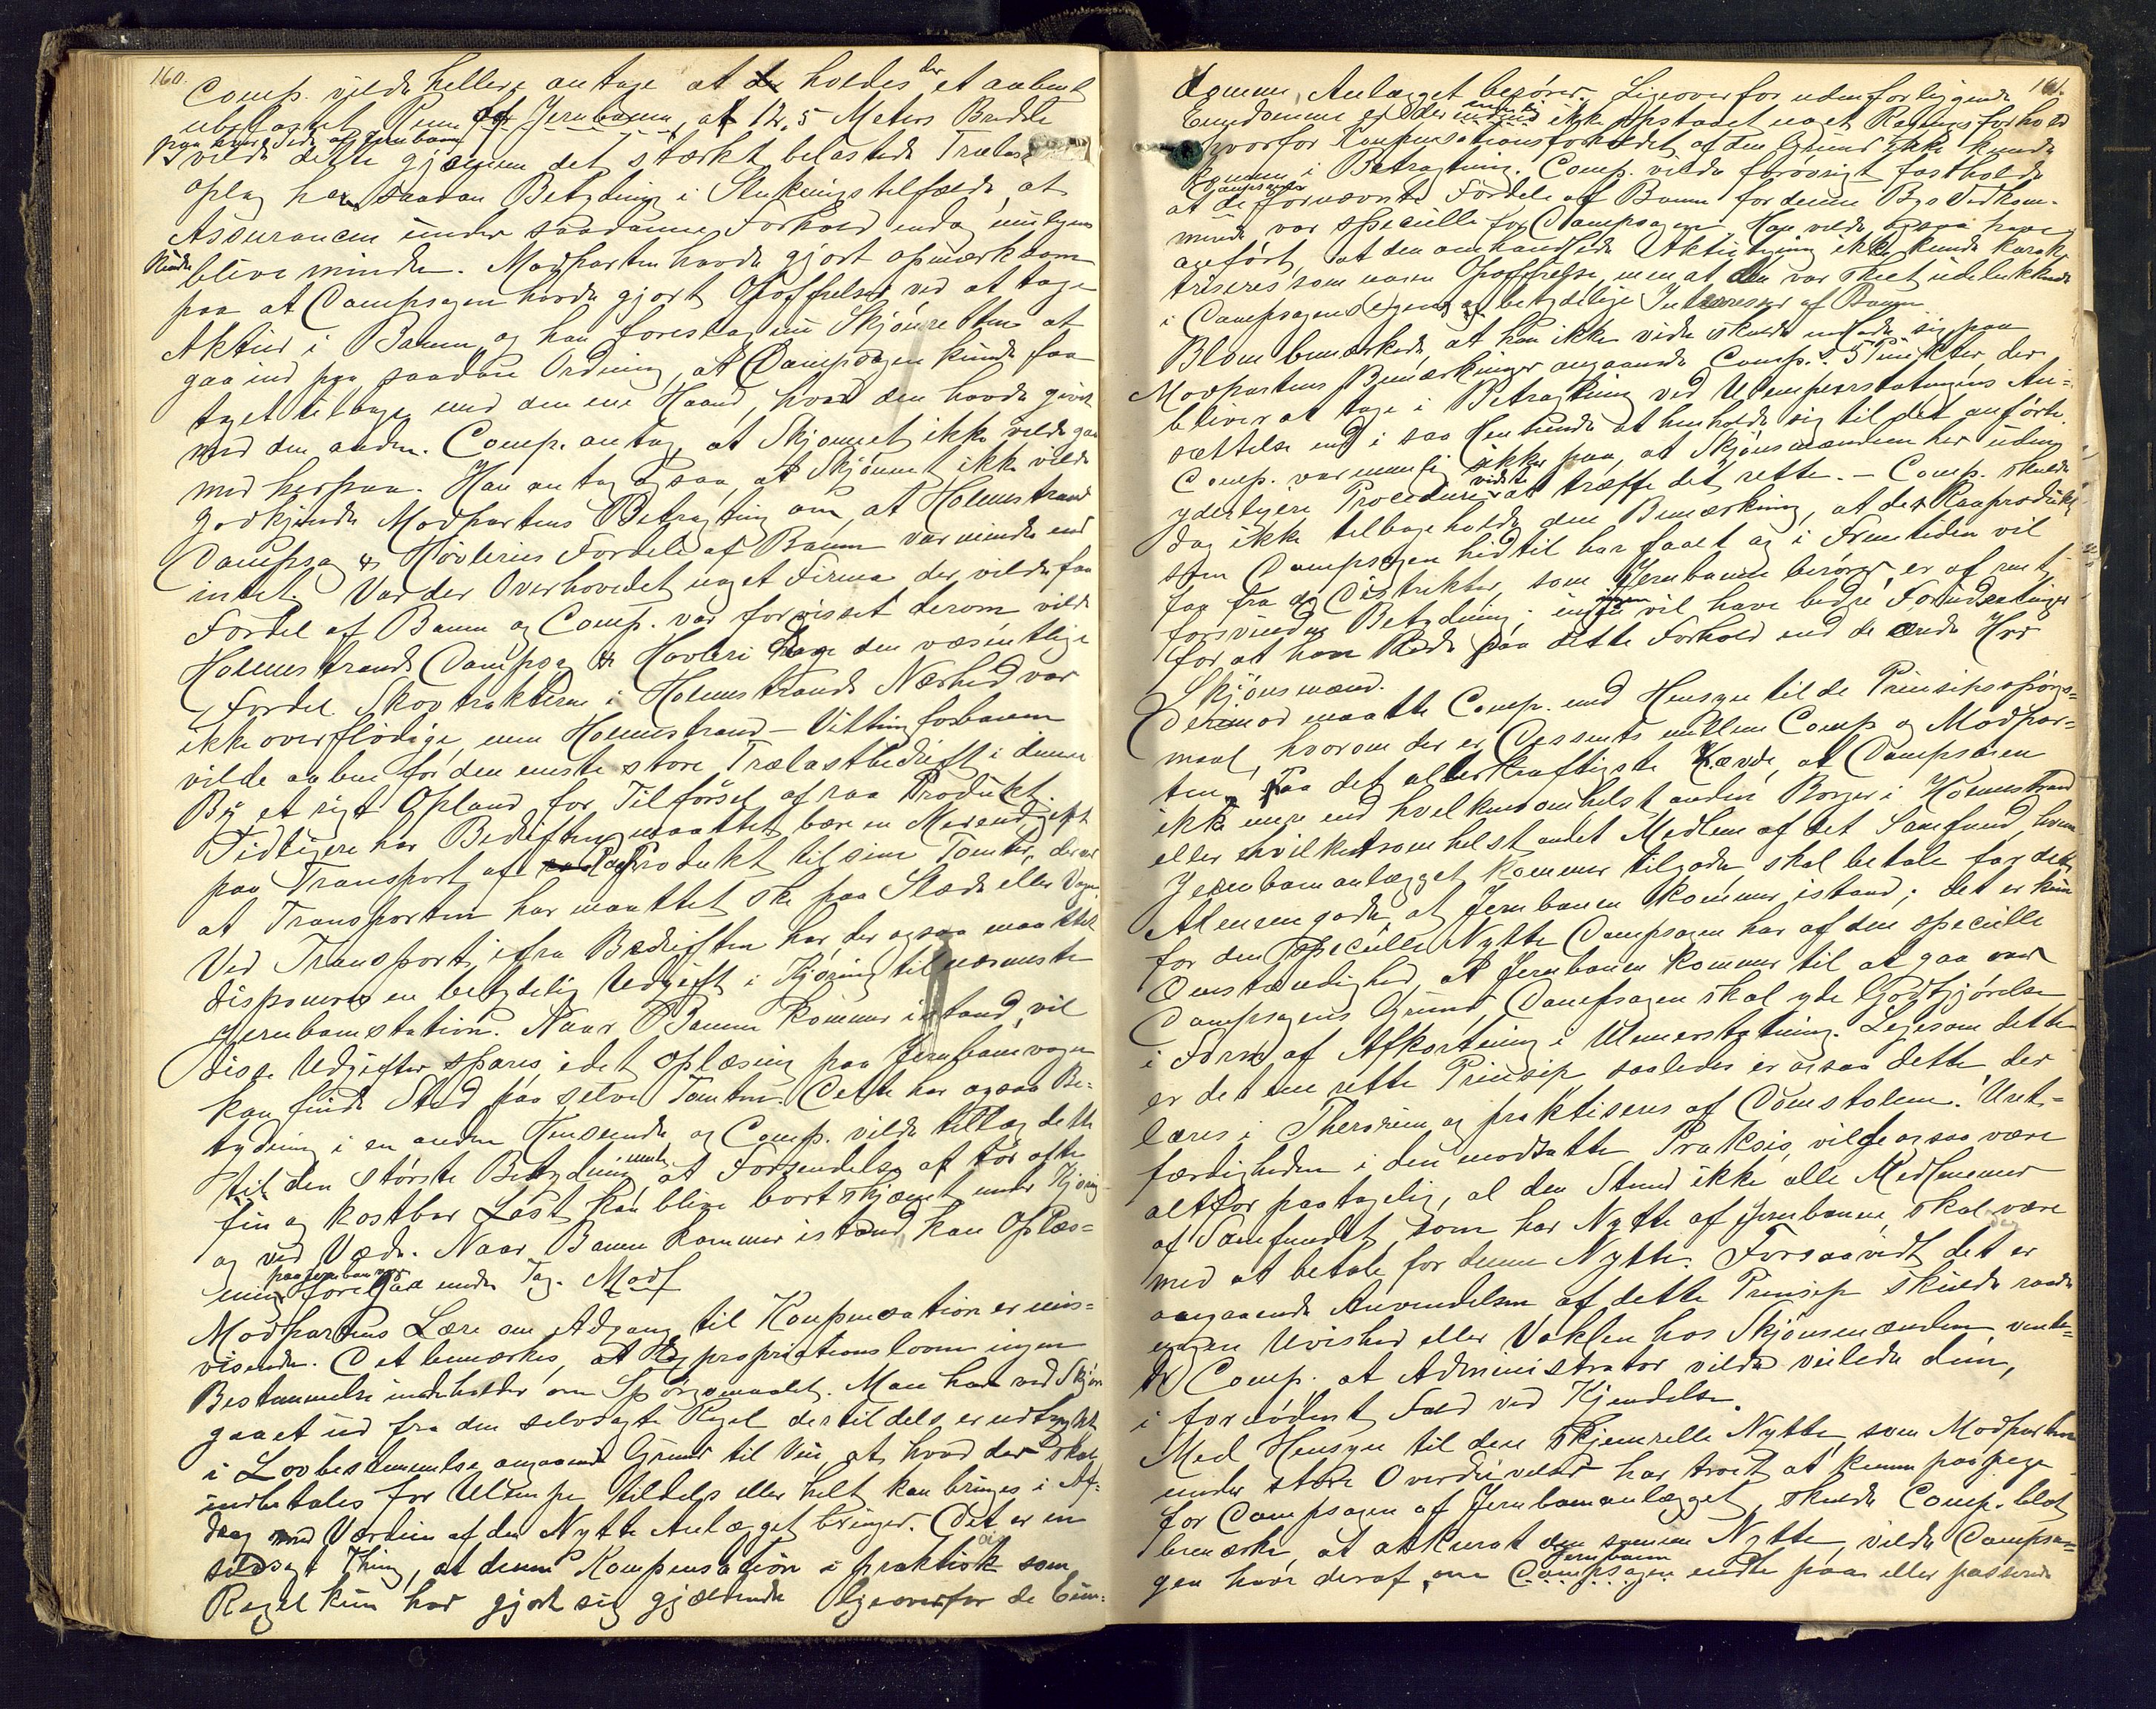 160.
Comp. vilde hellere antage at de holdes der et aabent
ubelastet Rum af Jernbanen, af 12,5 Meters Bredde
paa hver Side af Jernbanen
vilde dette gjennem det stærkt belastede Trælast
oplag have saadan Betydning i Slukningstilfælde, at
Assurancen under saadanne Forhold endog muligens
kunde blive mindre. Modparten havde gjort opmærksom
paa at Dampsagen havde gjort Opoffrelser ved at tage
Aktier i Banen og han foreslog nu Skjønsretten at
gaa ind paa saadan Ordning, at Dampsagen kunde faa
taget tilbage med den ene Haand, hvad den havde givet
med den anden. Comp. antog, at Skjønnet ikke vilde gaa
med herpaa. Han antog ogsaa, at Skjønnet ikke vilde
godkjende Modpartens Betragtning om, at Holmestrand
Dampsag & Høvleries Fordele af Banen var mindre end
intet. Var der Overhovedet noget Firma der vilde faa
Fordel af Banen og Comp. var forvisset derom vilde
Holmestrands Dampsag & Høvleri drage den væsentlige
Fordel Skovtrakterne i Holmestrands Nærhed var
ikke overflødige, men Holmestrand-Vittingfosbanen
vilde aabne for den eneste store Trælastbedrift i denne
By et rigt Opland for Tilførsel af raa Produkt.
Tidligere har Bedriften maattet bære en Merendgift
paa Transport af raa Produkt til sine Tomter, derved
at Transporten har maattet ske paa Slæde eller Vogn
Ved Transport ifra Bedriften har der ogsaa maattet
disponeres en betydelig Udgift i Kjøring til nærmeste
Jernbanestation. Naar Banen kommer istand, vil
disse Udgifter spares, idet Oplæsning paa Jernbanevogn
kan finde Sted paa selve Tomten. Dette har ogsaa Be-
tydning i en anden Henseende og Comp. vilde tillæg dette
til den største Betydning, at Forsendelse af tør ofte
fin og kostbar Last kan blive bortskjæmt under Kjøring
og ved Væde. Naar Banen kommer istand, kan Oplæs-
paa Jernbanevogn
ning foregaa under Tag. Modf
Modpartens Lære om Adgang til Kompensation er mis-
visende. Det bemærkes, at Expropriationsloven ingen
Bestemmelse indeholder om Spørgsmaalet. Man har ved Skjøn
gaaet ud fra den selvsagte Regel der tildels er udtrykt
i Lovbestemmelse angaaende Grund til Vei, at hvad der skal
indbetales for Ulempe tildels eller helt kan bringes i Af-
drag med Værdien af den Nytte Anlægget bringer. Det er en
selvsagt Thing, at denne Kompensation i praktisk som
Regel kun har gjort sig gjældende ligeoverfor de Eien-
161.
domme, Anlægget berører. Ligeoverfor udenforliggende
Eiendomme er der nemlig ikke opstaaet noget Retsforhold
hvorfor Kompensationsforholdet af den Grund ikke kunde
komme i Betragtning. Comp. vilde forøvrigt fastholde
at de fornævnte Fordele af Banen for denne Bys Vedkom-
mende var specielle for Dampsagen. Han vilde ogsaa have
anført, at den omhandlede Aktietegning ikke kunde karak-
triseres som nogen Opoffrelse, men at den var skeet udelukkende
i Dampsagens egen og betydelige Interesser af Banen
Blom bemærkede, at han ikke vilde skulde indlade sig paa
Modpartens Bemærkninger angaaende Comp.s 5 Punkter, der
bliver at tage i Betragtning ved Ulempeerstatningens An-
sættelse end i saa Henseende at henholde sig til det anførte.
Comp. var nemlig sikker paa, at Skjønsmændene her uden
yderligere Procedure vidste at træffe det rette. - Comp. skulde
dog ikke tilbageholde den Bemærkning, at det Raaprodukt
som Dampsagen hidtil har faaet og i Fremtiden vil
faa fra de Distrikter, som Jernbanen berører, er af rent
forsvindende Betydning; ingen vil have bedre Forudsætninger
for at have Rede paa dette Forhold end de ærede Hrr
Skjønsmænd.
Derimod maatte Comp. med Hensyn til de Prinsipspørgs-
maal, hvorom der er Dessents mellem Comp og Modpar-
ten paa det allerkraftigste hævde, at Dampsagen
ikke mere end hvilkensomhelst anden Borger i Holmestrand
eller hvilketsomhelst andet Medlem af det Samfund, hvem
Jernbaneanlægget kommer tilgode, skal betale for det
Almengode, at Jernbanen kommer istand; det er kun
for den specielle Nytte Dampsagen har af den specielle
Omstændighed, at Jernbanen kommer til at gaa over
Dampsagens Grund, Dampsagen skal yde Godtgjørelse
i Form af Afkortning i Ulemeerstatning. Ligesom dette
er det ene rette Prinsip saaledes er ogsaa dette, der
læres i Theorien og praktiseres af Domstolene. Uret-
færdigheden i den modsatte Praksis vilde ogsaa være
altfor paatagelig, al den Stund ikke alle Medlemmer
af Samfundet, som har Nytte af Jernbanen, skal være
med at betale for denne Nytte. Forsaavidt det er
angaaende Anvendelsen af dette Prinsip skulde raade
nogen Uvished eller Vaklen hos Skjønsmændene, vente-
de Comp. at Administrator vilde veilede dem,
i fornødent Fald ved Kjendelse.
Med Hensyn til den Skjenerelle Nytte, som Modparten
under store Overdrivelser har troet at kunne paapege
for Dampsagen af Jernbaneanlægget, skulde Comp. blot
bemærke, at akkurat den samme Nytte, vilde Dampsa-
gen have deraf, om Jernbanen Dampsagen endte paa eller passerede